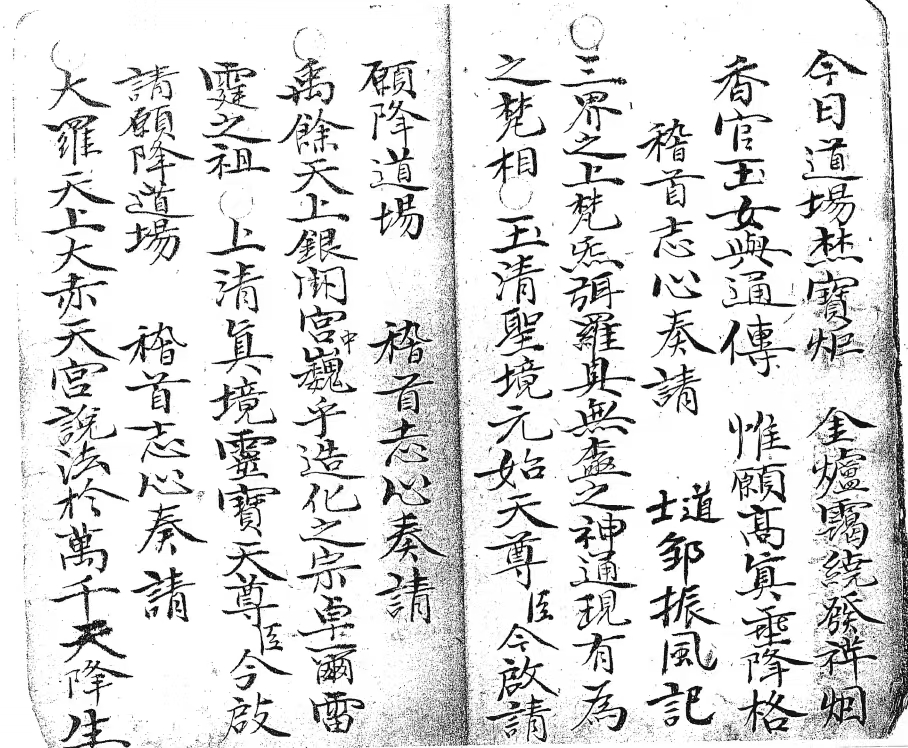 今日道場焚寶炬　金爐靄繞發祥烟
香官玉女與通傳　惟願高眞垂降格
稽首志心奏請　道士鄒振風記
三界之上梵炁弭羅具無盡之神通現有為
之梵相　玉清聖境元始天尊臣今啟請
願降道場　稽首志心奏請
禹餘天上銀闕宮中巍乎造化之宗卓爾雷
霆之祖　上清眞境靈寶天尊臣今啟
請願降道場　稽首志心奏請
大羅天上大赤天宮說法於萬千天降生